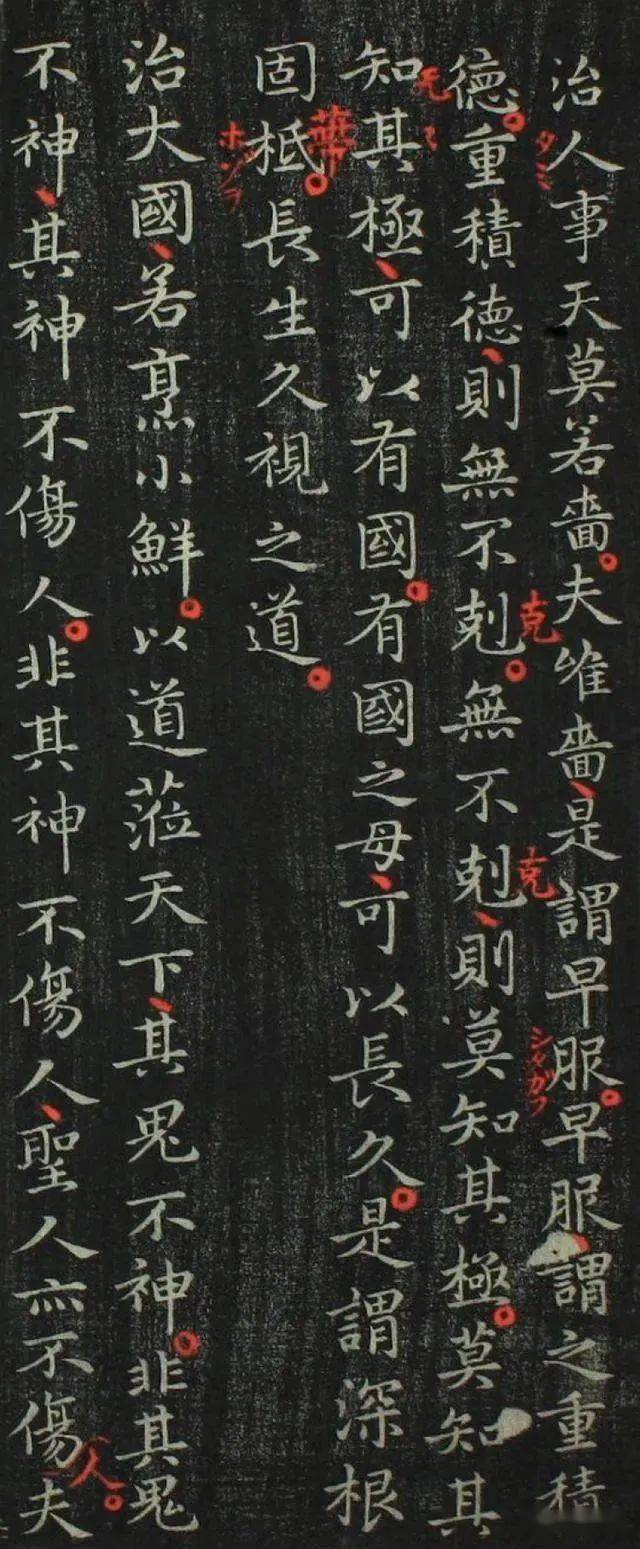 治人事天莫若嗇夫唯嗇是謂早服早服謂之重積
タミ
シタガフ
德重積德則無不剋無不剋則莫知其極莫知其
克
克
知其極可以有國有國之母可以長久是謂深根
固柢長生久視之道
ホゾヲ
治大國若烹小鮮以道蒞天下其鬼不神非其鬼
不神其神不傷人非其神不傷人聖人亦不傷夫
人